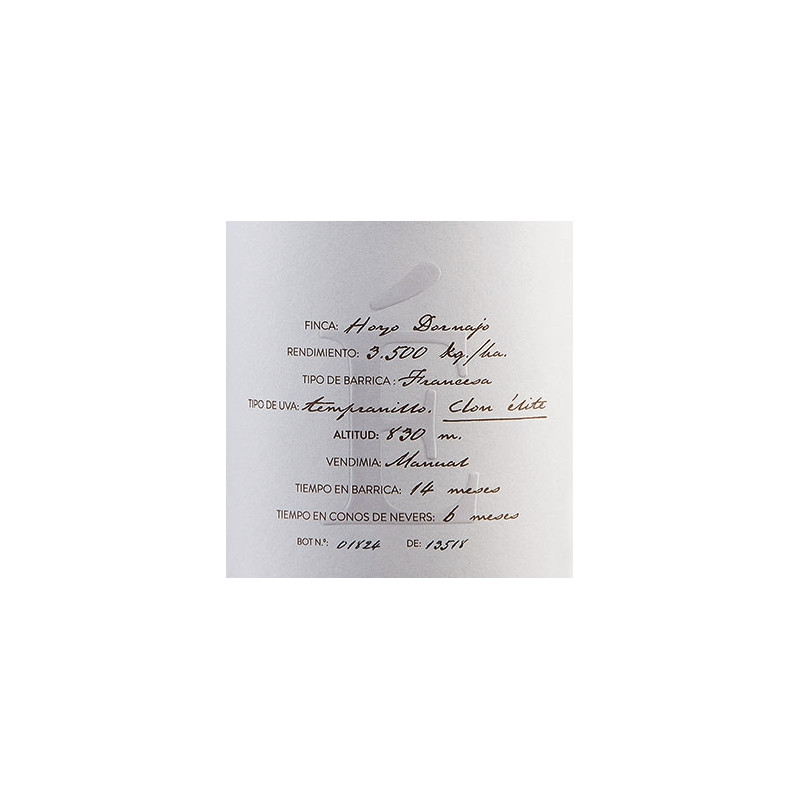 É
FINCA: Hoyo Dornajo
RENDIMIENTO: 3.500 kg./ha.
TIPO DE BARRICA: Francesa
TIPO DE UVA: tempranillo. Clon élite
ALTITUD: 830 m.
VENDIMIA: Manual
TIEMPO EN BARRICA: 14 meses
TIEMPO EN CONOS DE NEVERS: 6 meses
BOT N.º: 01824 DE: 13518